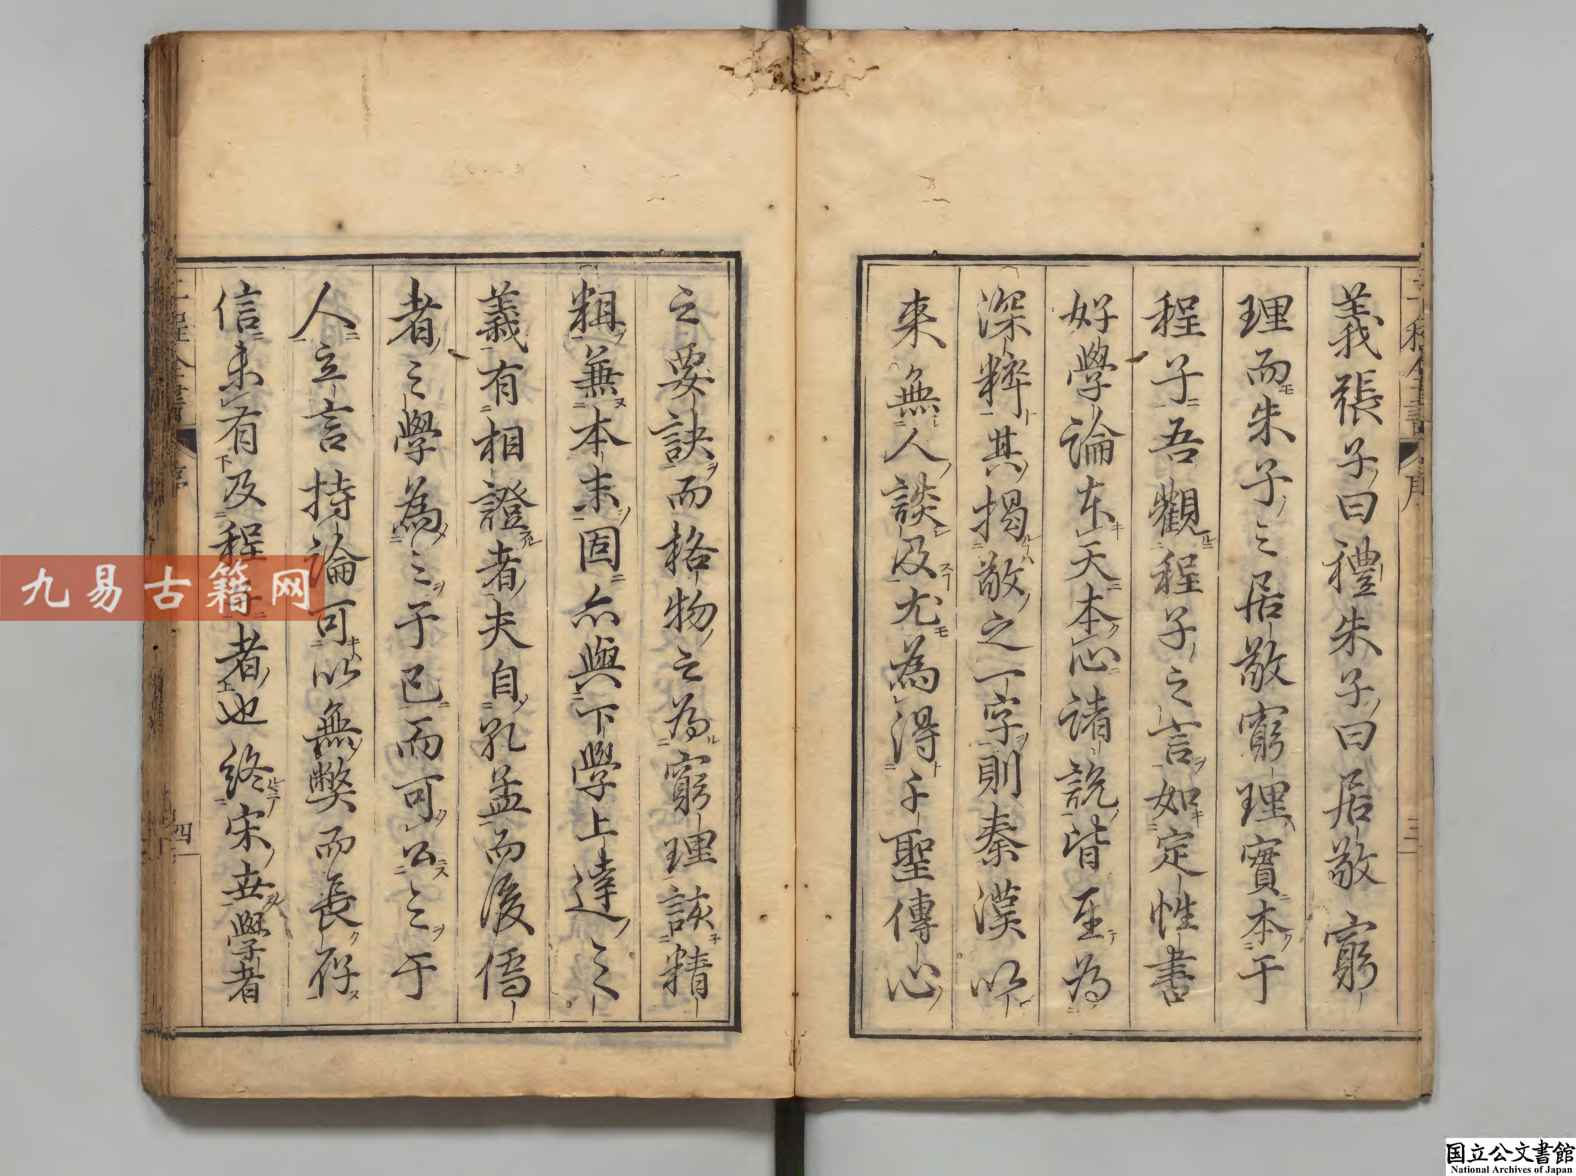 義張子曰禮朱子曰居敬窮
理而朱子之居敬窮理實本于
程子吾觀程子之言如定性書
好學論本天本心諸説皆至為
深粹其揭敬之一字則秦漢以
來無人談及尤為得千聖傳心
之要訣而格物之為窮理該精
粗兼本末固亦與下學上達之
義有相證者夫自孔孟而後儒
者之學為之于已而可公之于
人立言持論可以無弊而長存
信未有及程子者也終宋世學者
四
九易古籍网
国立公文書館
National Archives of Japan